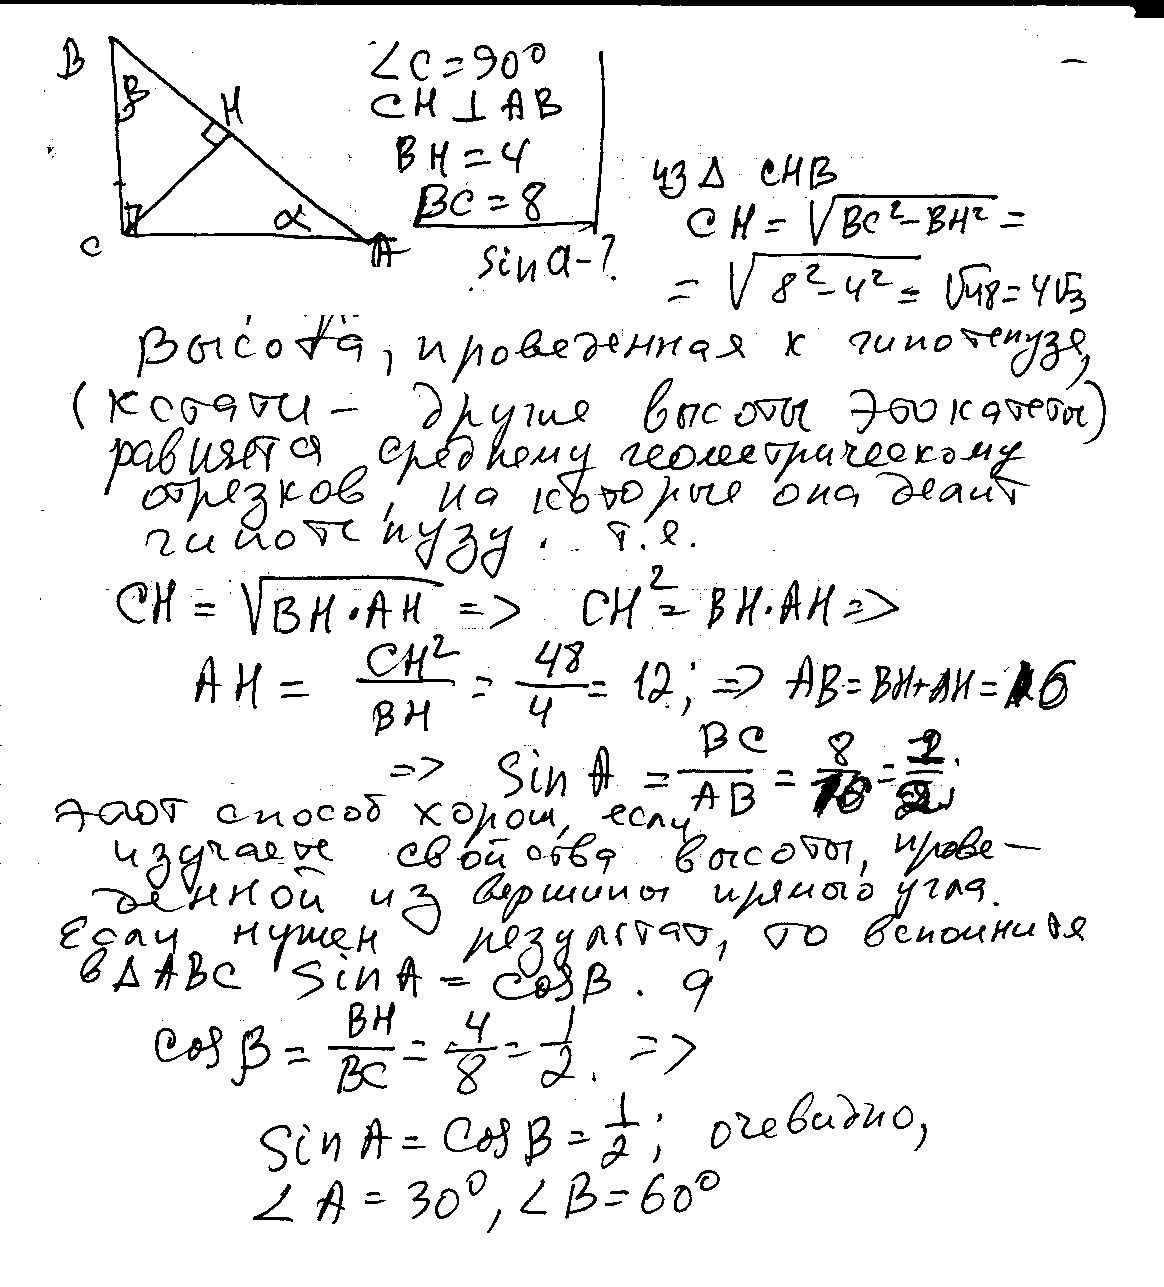 B
β
H
C
α
A
∠C=90°
CH⊥AB
BH=4
BC=8
sin α-?
из Δ CHB
CH=√BC²-BH² =
= √8²-4² = √48=4√3
Высота, проведенная к гипотенузе,
(кстати - другие высоты это катеты)
равняется среднему геометрическому
отрезков, на которые она делит
гипотенузу. т.е.
CH = √BH·AH => CH²=BH·AH=>
AH = CH²/BH = 48/4 = 12; => AB=BH+AH=16
=> Sin A = BC/AB = 8/16 = 1/2.
этот способ хорош, если
изучаете свойства высоты, прове-
денной из вершины прямого угла.
Если нужен результат, то вспомните
в ΔABC Sin A = cosβ. а
cosβ = BH/BC = 4/8 = 1/2. =>
Sin A = Cosβ = 1/2; очевидно,
∠A = 30°, ∠B=60°